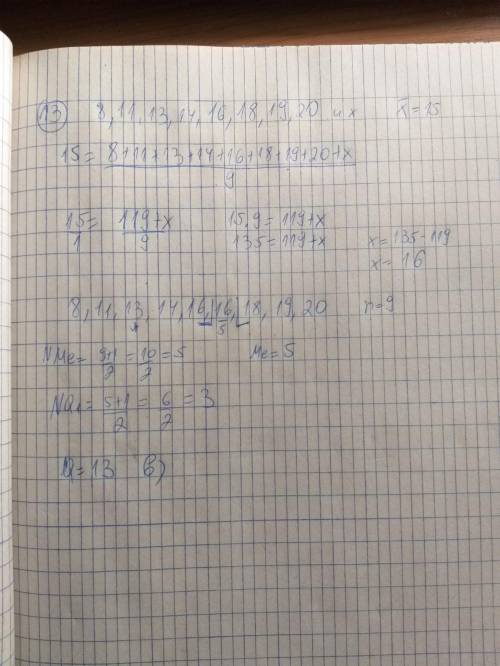 13 8, 11, 13, 14, 16, 18, 19, 20 и x x̄ = 15
15 = (8+11+13+14+16+18+19+20+x)/9
15/1 = (119+x)/9 15.9 = 119+x
135 = 119+x x = 135-119
x = 16
8, 11, 13, 14, 16, 16, 18, 19, 20 n = 9
5
NMe = (9+1)/2 = 10/2 = 5 Me = 5
NQ₁ = (5+1)/2 = 6/2 = 3
Q = 13 в)